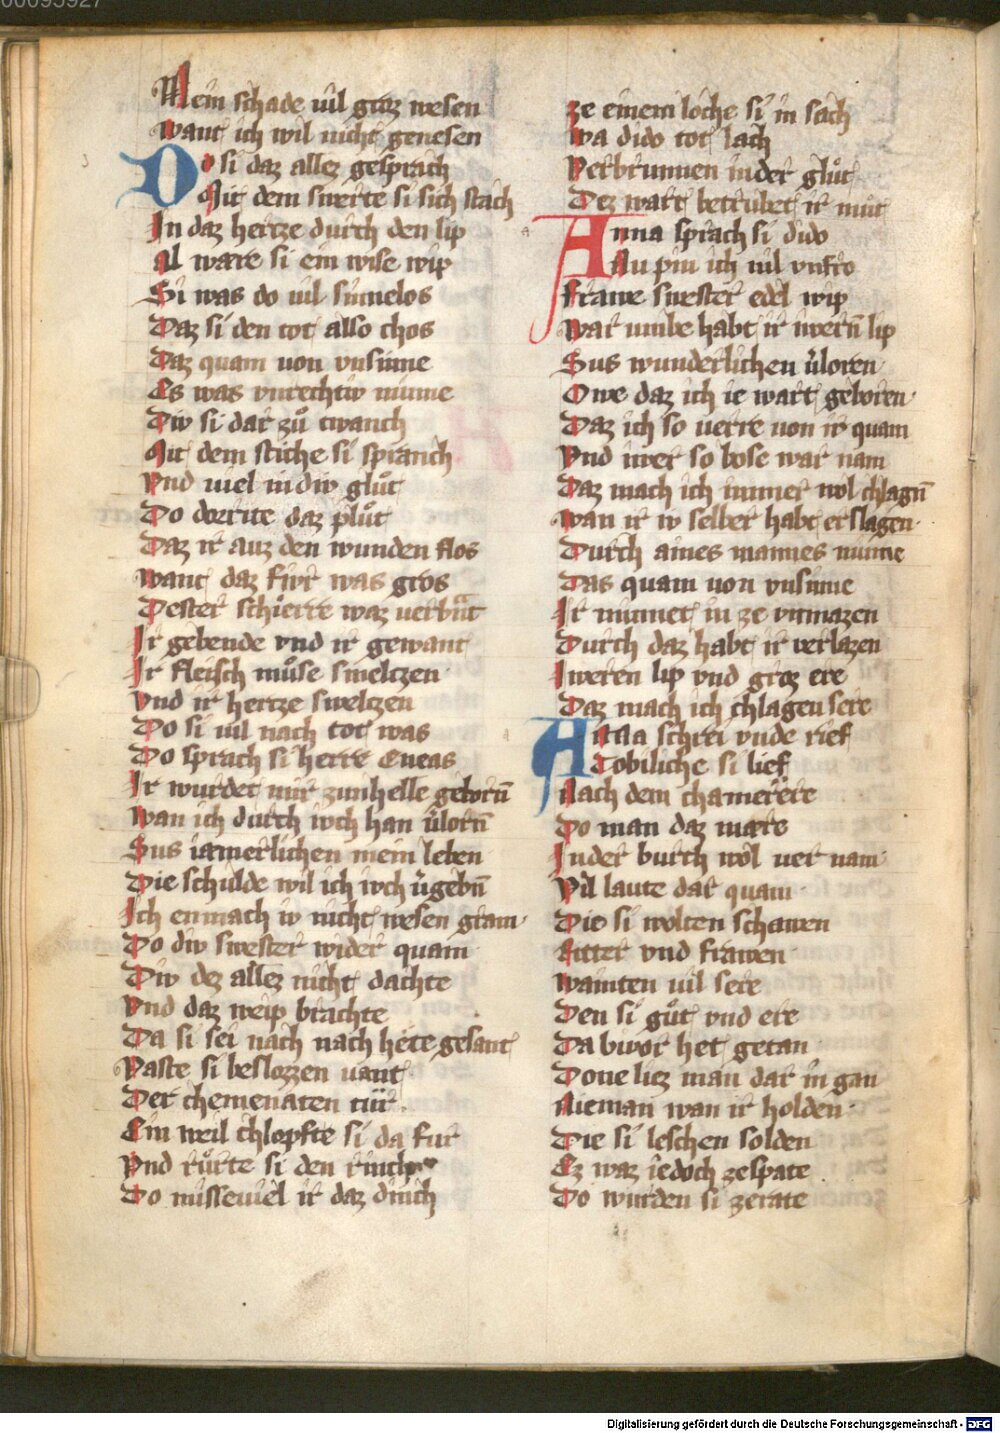 00095927
Mein schade uil groz wesen
Want ich wil nicht genesen
Do si daz allez gesprach
Mit dem swerte si sich stach
In daz hertze durch den lip
Al ware si ein wise wip
Si was do uil sinnelos
Daz si den tot also chos
Daz quam uon unsinne
Es was unrechtiv minne
Div si dar zuͦ twanch
Mit dem stiche si spranch
Vnd uiel in div gluͦt
Do dorrite daz pluͦt
Daz ir auz den wunden flos
Want daz fivr was gros
Dester schierre waz uerbrāt
Ir gebende vnd ir gewant
Ir fleisch muͦse smeltzen
Vnd ir hertze sweltzen
Do si uil nach tot was
Do sprach si herre Eneas
Ir wurdet mir zunhelle geborn̄
Wan ich durch iwch han v̄lorn̄
Sus iamerlichen mein leben
Die schulde wil ich iwch v̄gebn̄
Ich enmach iv nicht wesen gram
Do div swester wider quam
Div dez allez nicht dachte
Vnd daz weip brachte
Da si sei nach nach hete gesant
Vaste si beslozzen vant
Der chemenaten tür
Ein weil chlopfte si da fur
Vnd ruͦrte si den rinch
Do misseuiel ir daz dinch
ze einem loche si in sach
Wa dido tot lach
Verbrunnen in der gluͦt
Dez wart betrubet ir muͦt
Anna sprach si dido
Nu pin ich uil vnfro
Frawe swester edel wip
War umbe habt ir iwern̄ lip
Sus wunderlichen v̄loren
Owe daz ich ie wart geboren
Daz ich so uerre uon iv quam
Vnd iwer so bose war nam
Daz mach ich immer wol chlagn̄
Wan ir iv selber habt erslagen
Durch aines mannes minne
Das quam uon vnsinne
Ir minnet in ze vnmazen
Durch daz habt ir verlazen
Iweren lip vnd groz ere
Daz mach ich chlagen sere
Anna schrei vnde rief
Tobiliche si lief
Nach dem chamerere
Do man daz mare
In der burch wol uer nam
Vil laute dar quam
Die si wolten schawen
Ritter vnd frawen
Wainten uil sere
Den si guͦt vnd ere
Da biuor het getan
Done liez man dar in gan
Nieman wan ir holden
Die si leschen solden
Ez waz iedoch ze spate
Do wurden si ze rate
Digitalisierung gefördert durch die Deutsche Forschungsgemeinschaft - DFG